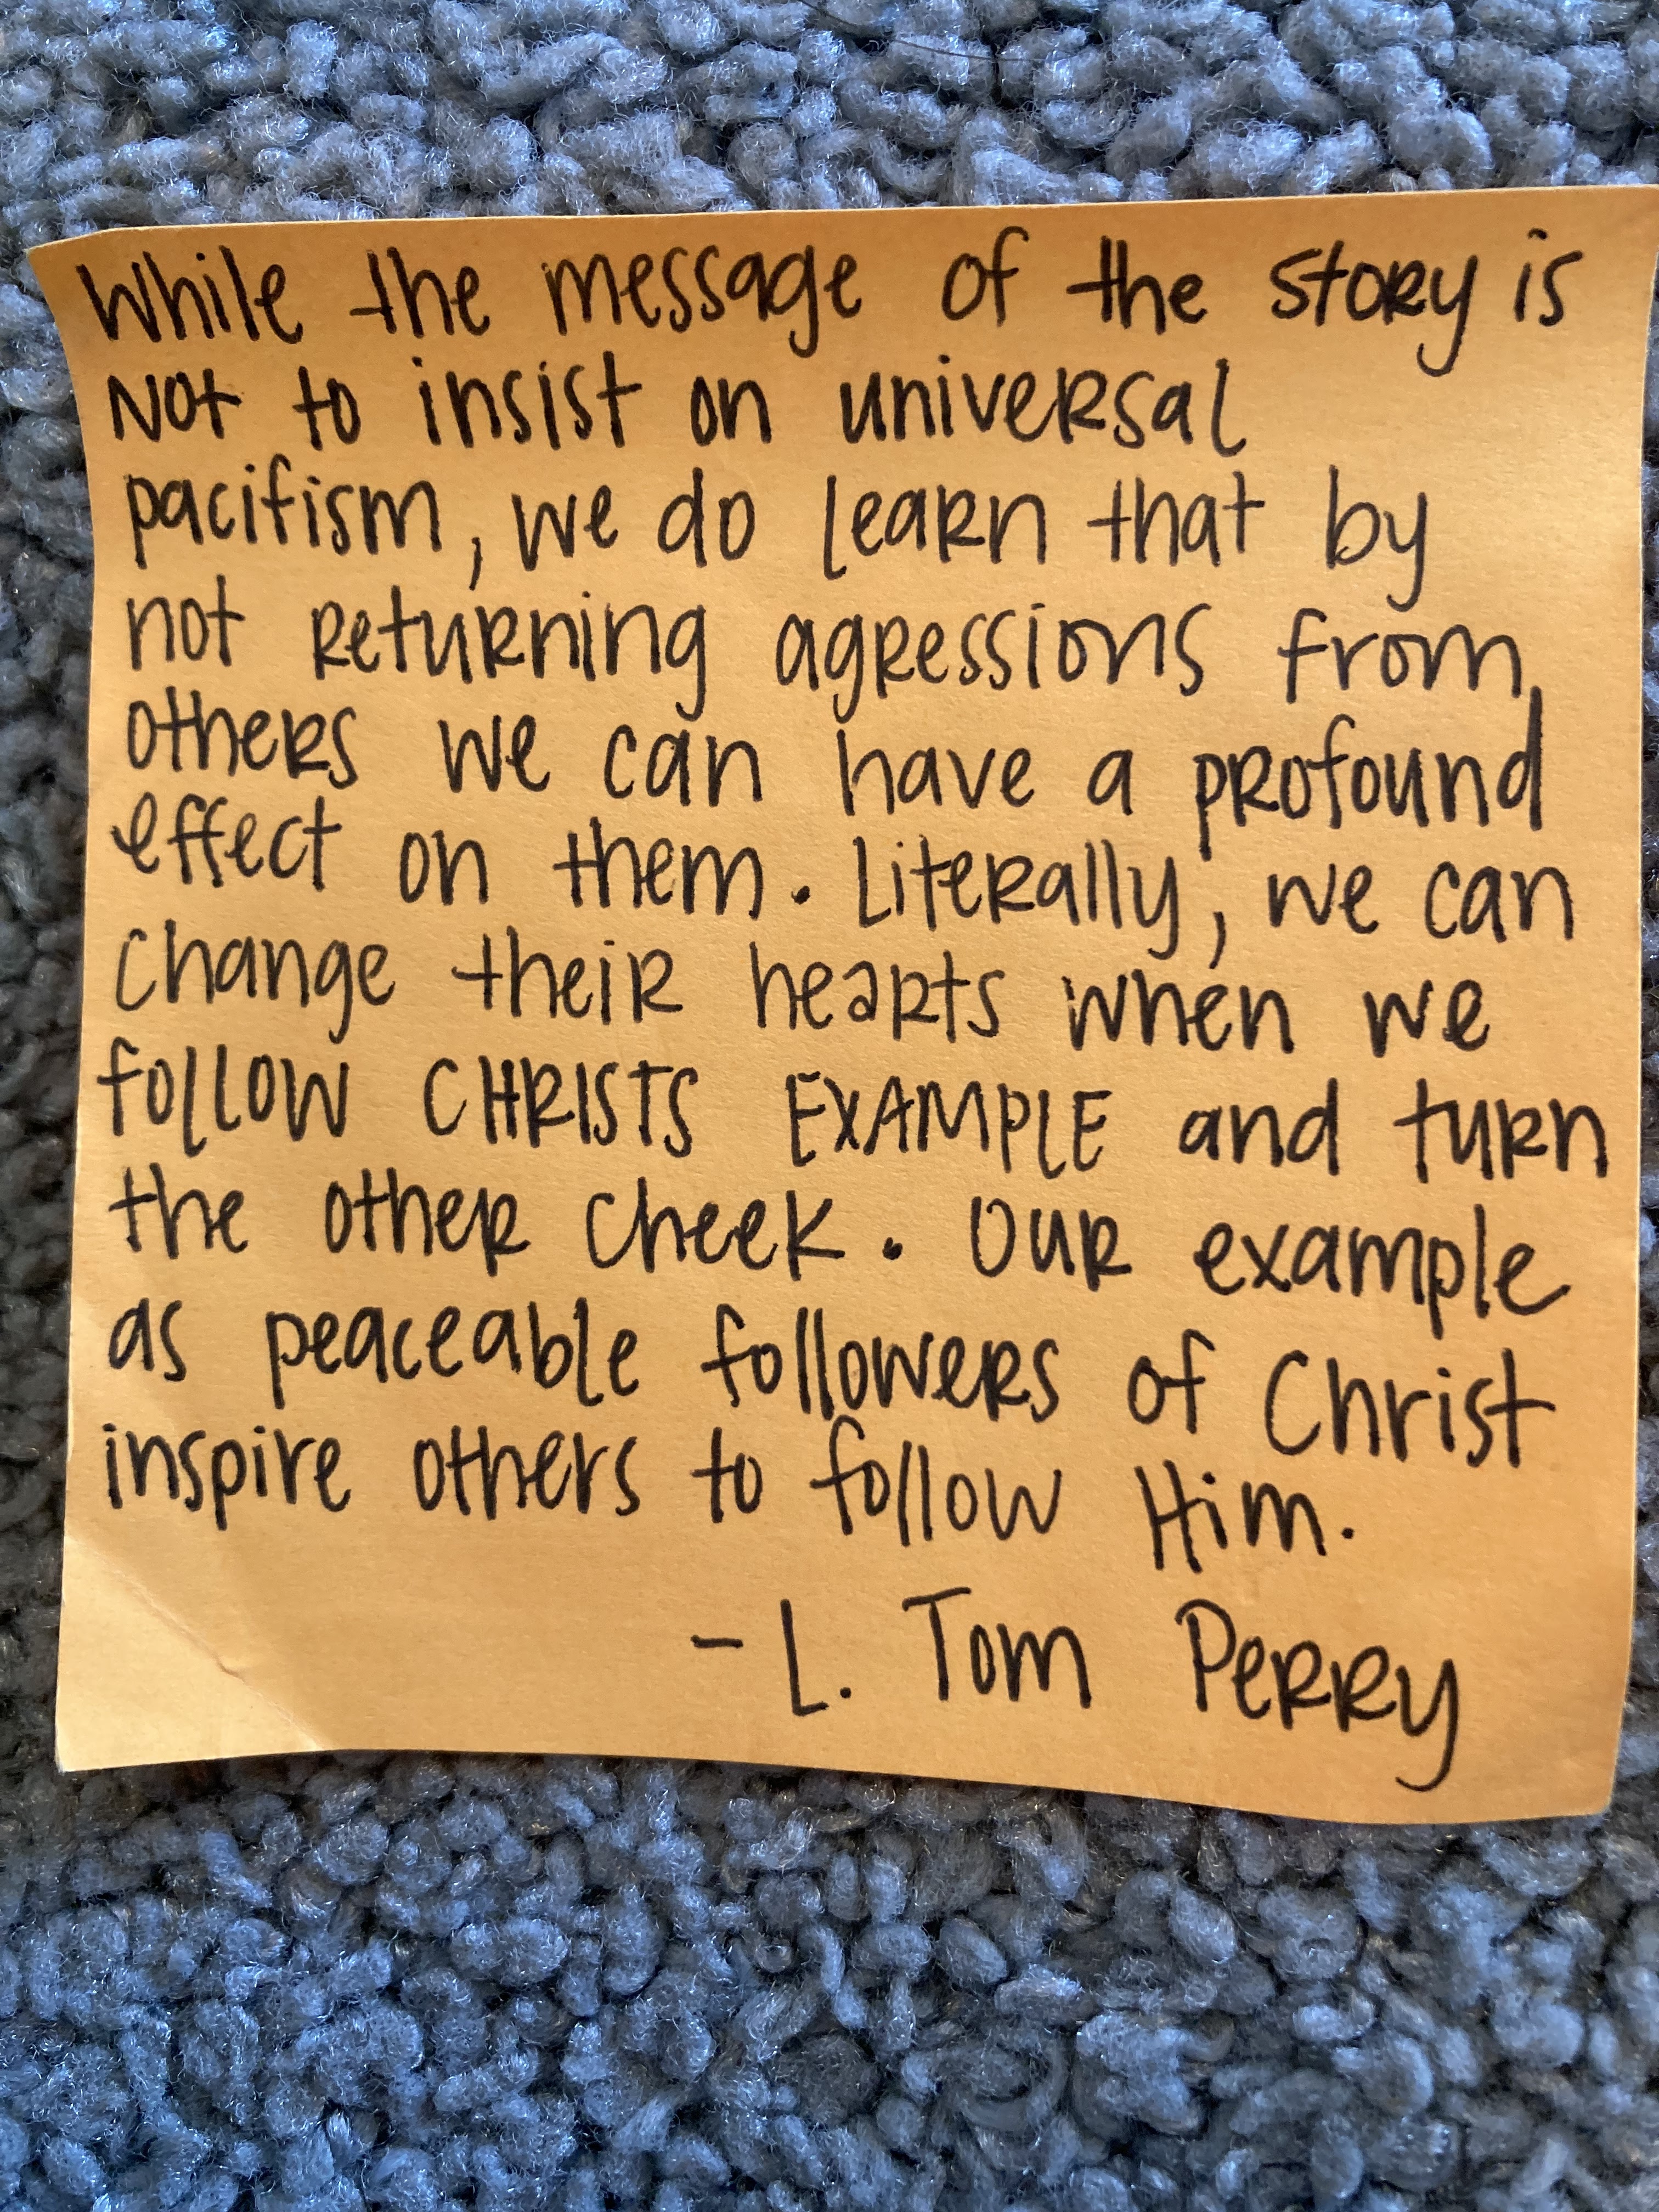 While the message of the story is
Not to insist on universal
pacifism, we do learn that by
not returning agressions from
others we can have a profound
effect on them. Literally, we can
change their hearts when we
follow CHRISTS EXAMPLE and turn
the other cheek. Our example
as peaceable followers of Christ
inspire others to follow Him.
- L. Tom Perry